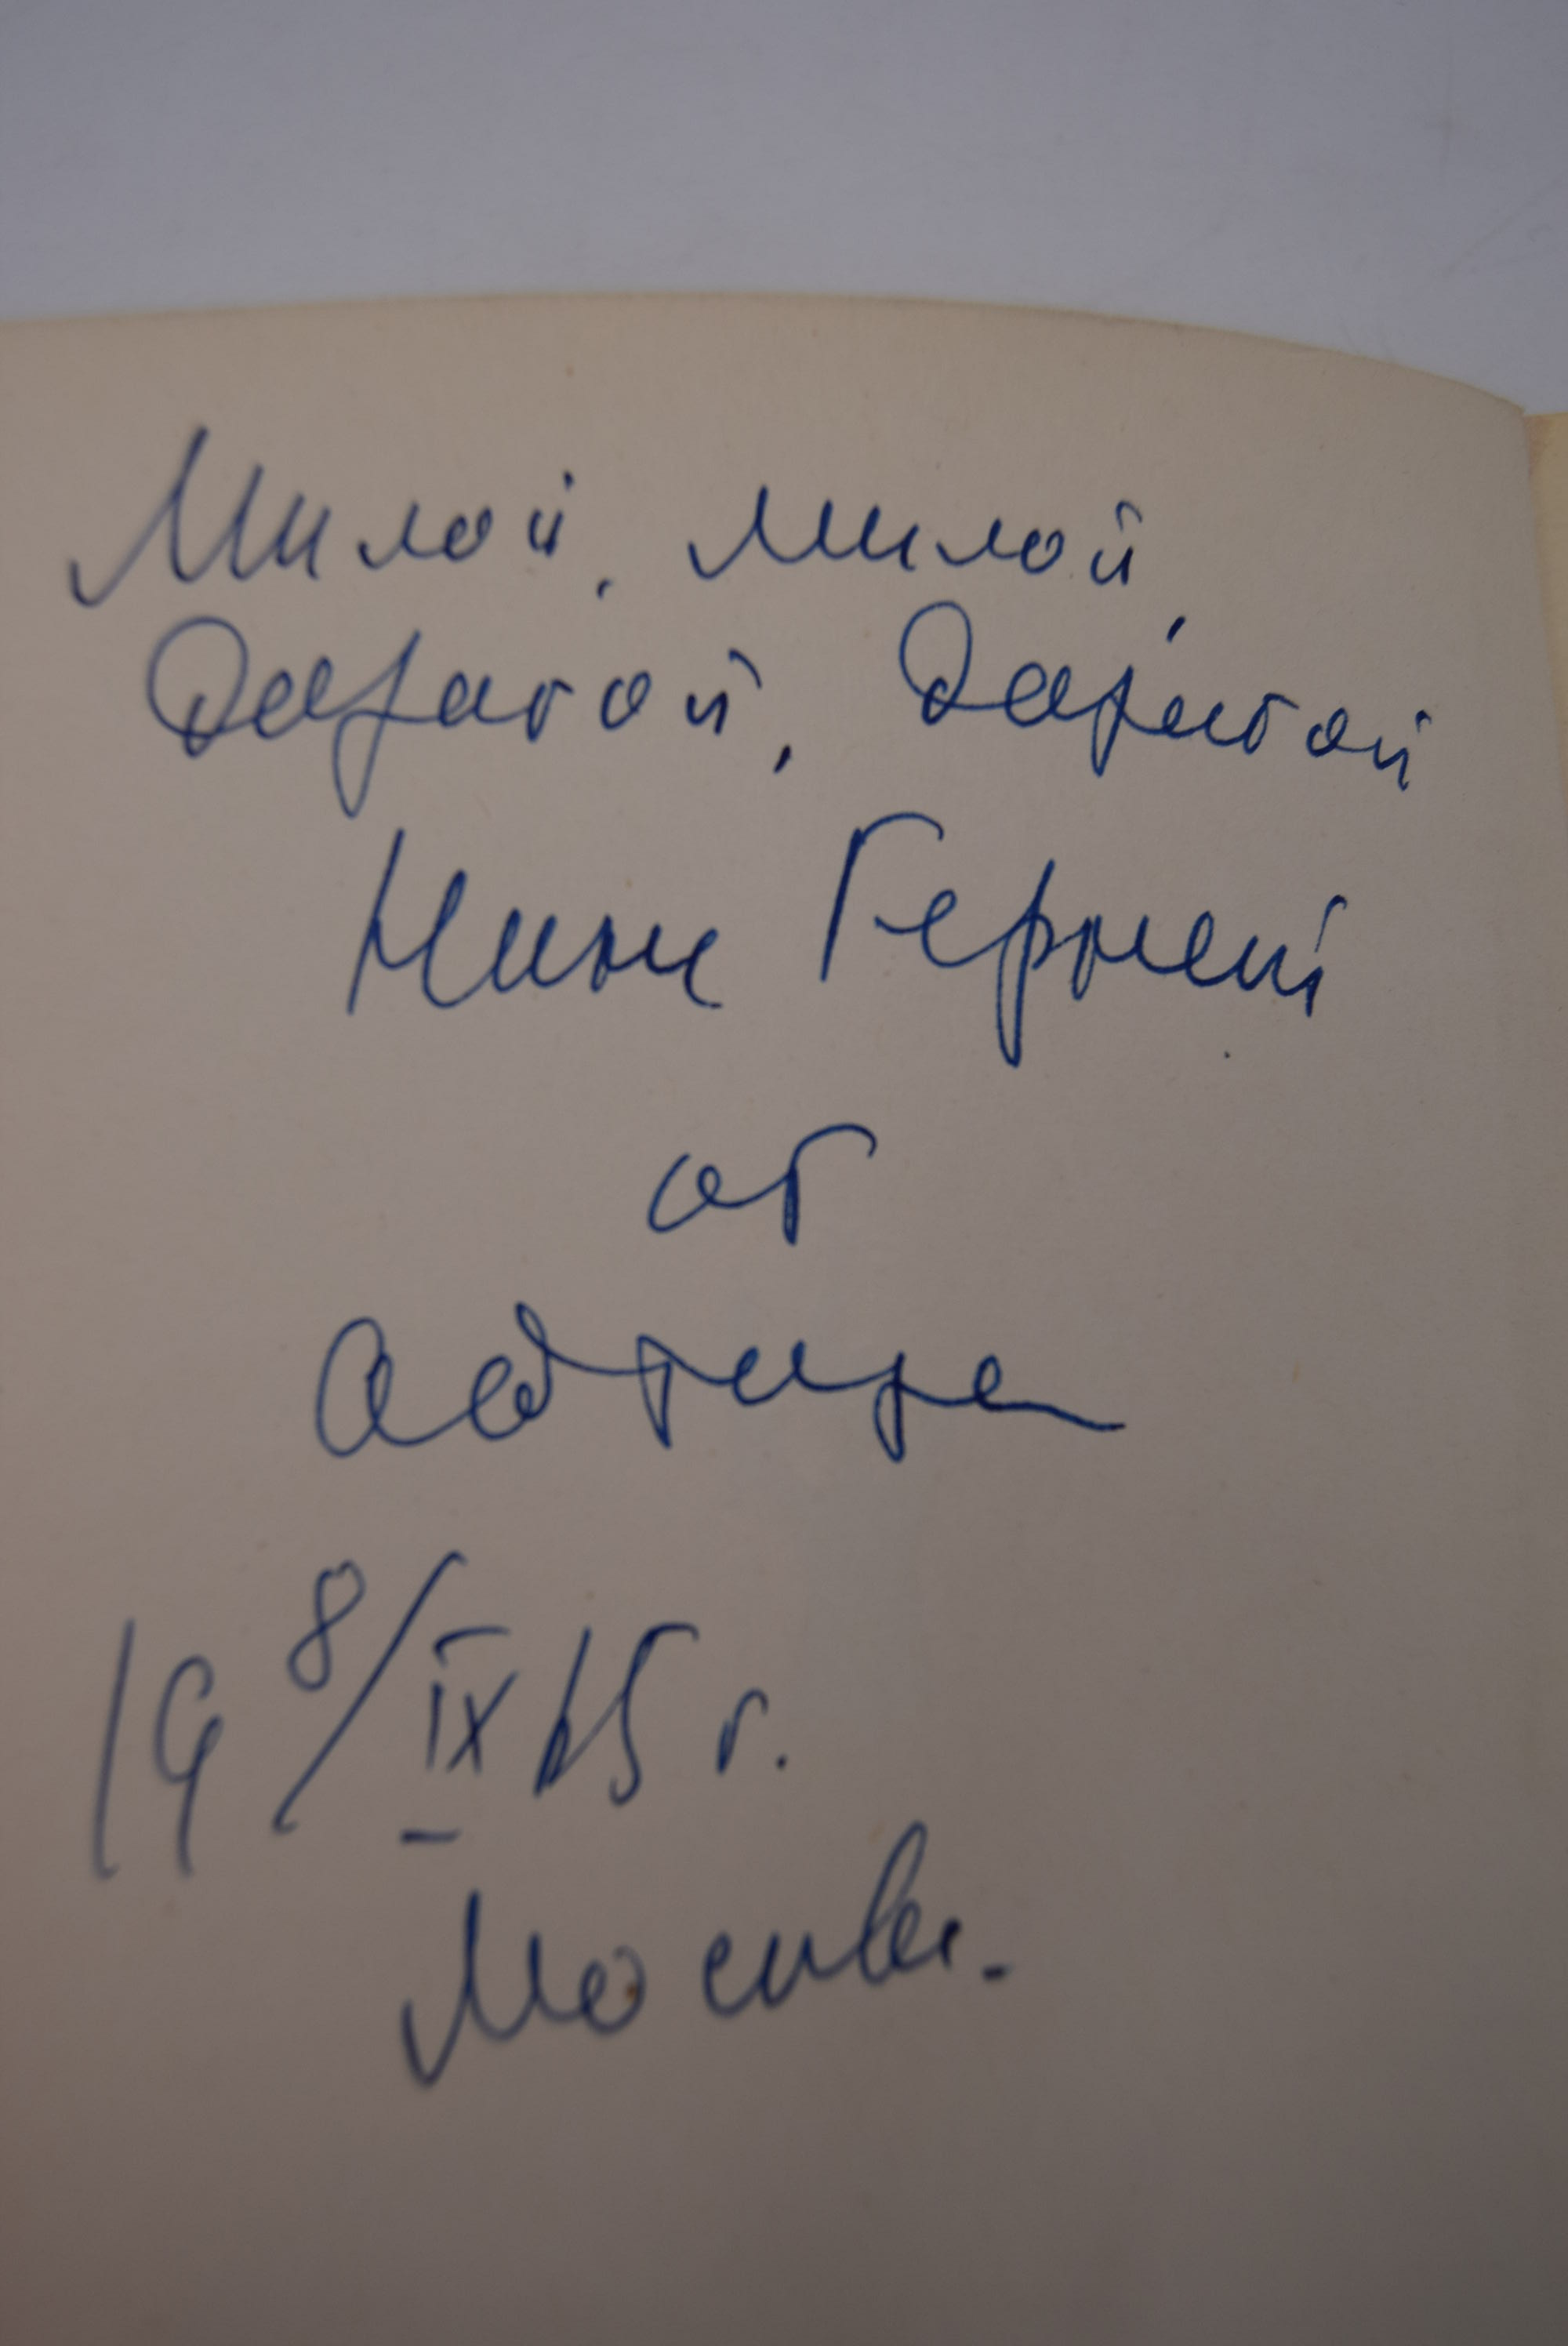 Милой, милой,
дорогой, дорогой
Нине Гернет
от
автора
19 8/IX 65 г.
Москва.